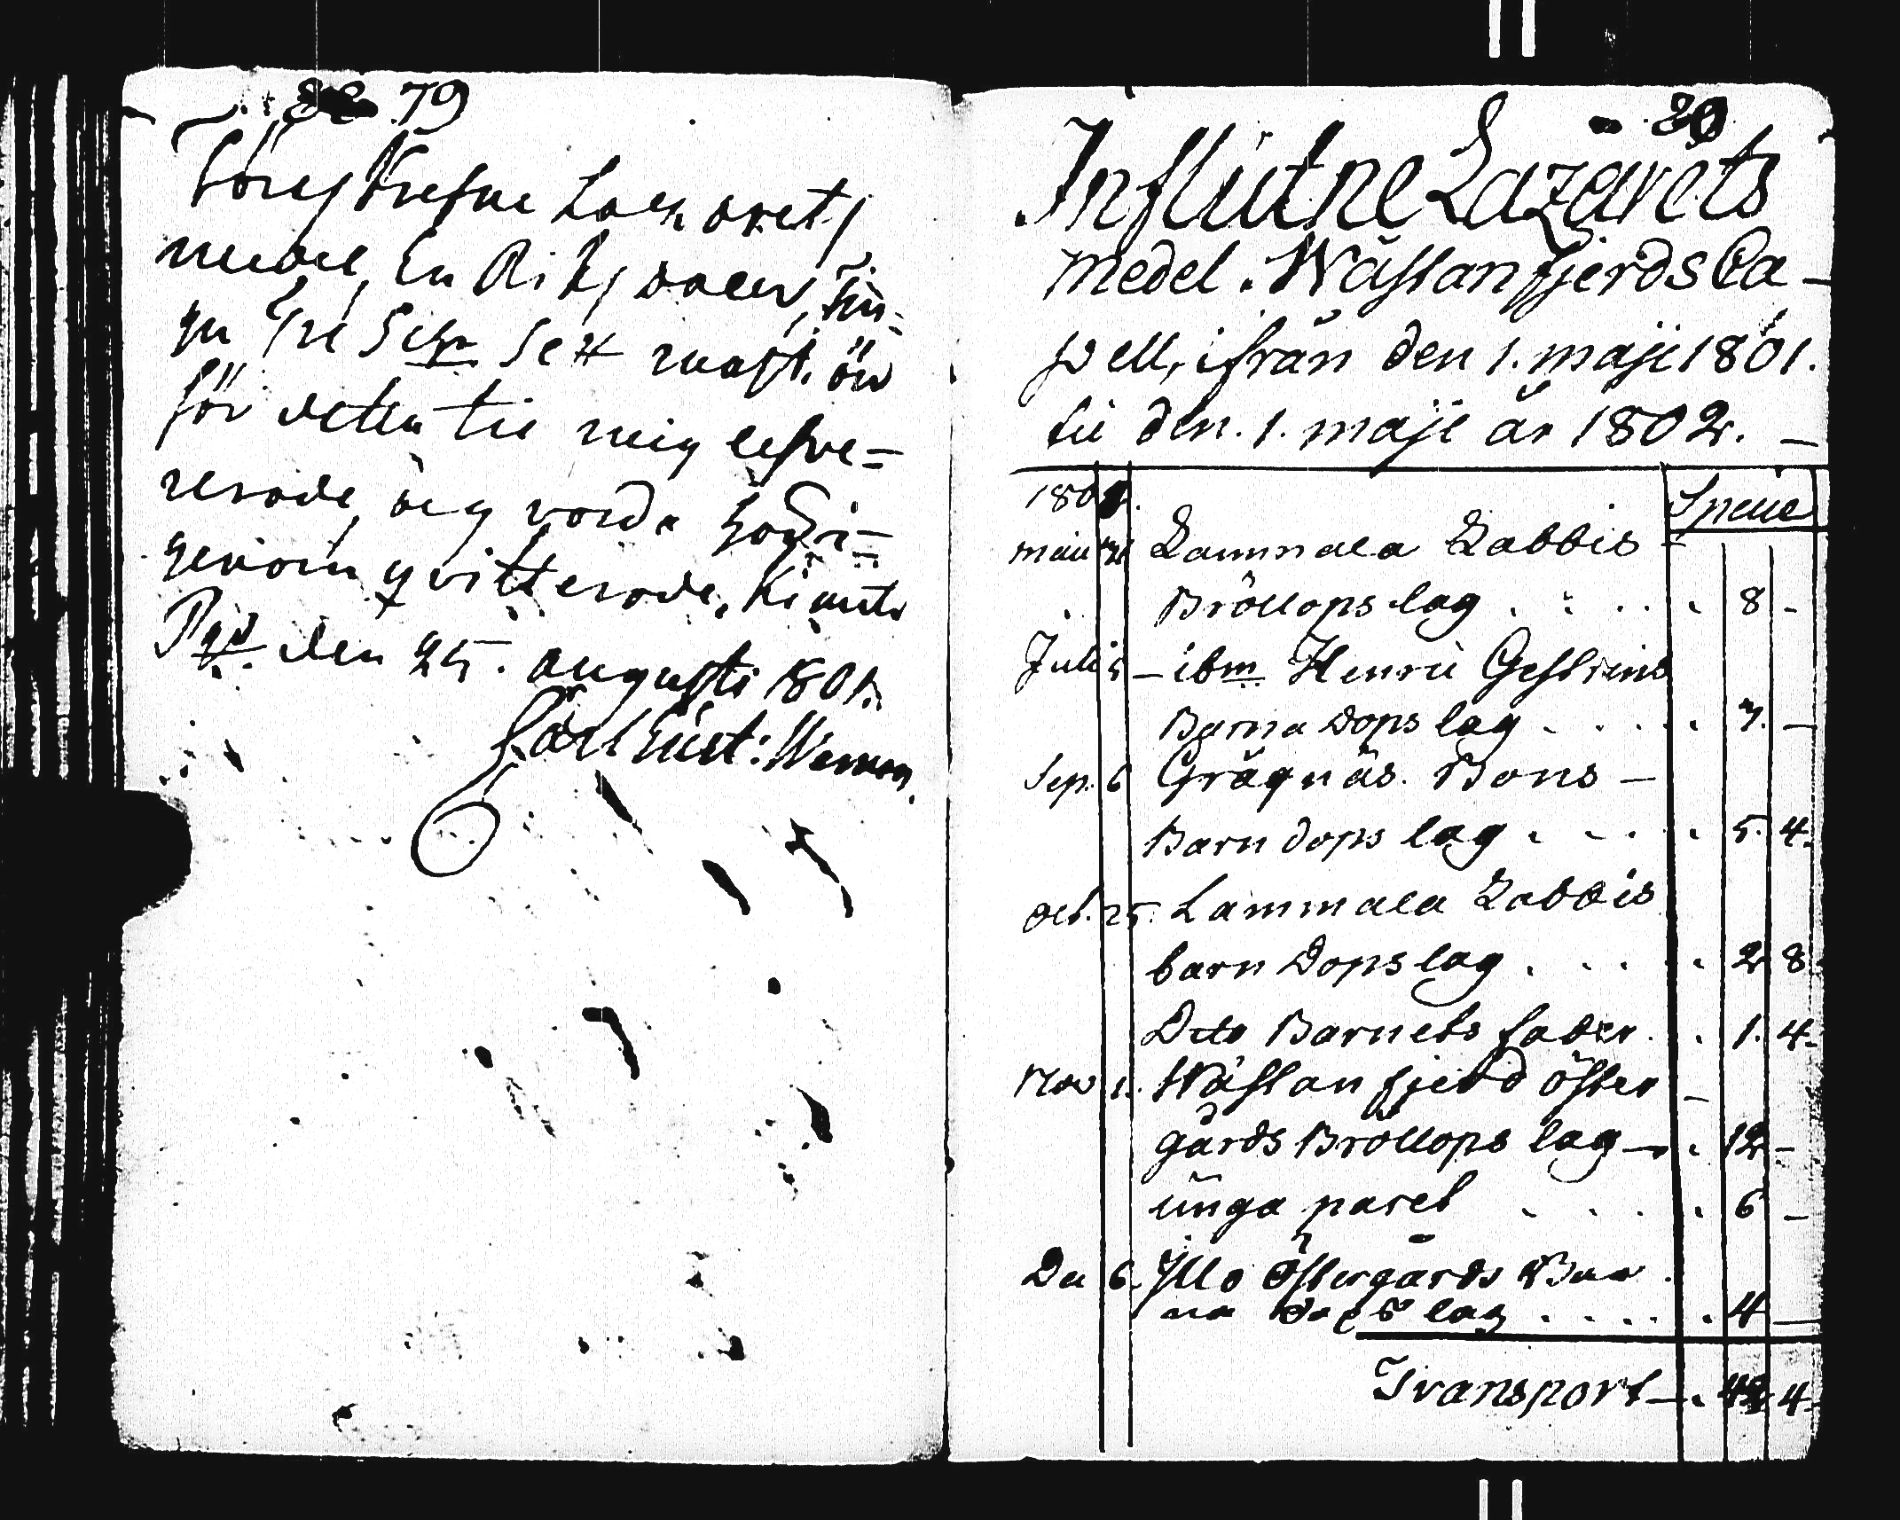 79
Föreskrefne Lazarets
medel, En Riksdaler, tiu-
gu tre Sch. Sex rnst. öre
för detta til mig lefve-
rerade, och varda häri-
genom qvitterade, Kimito
Pgd. den 25. augusti 1801.
Carl Gust: Weman.
80
Inflütne Lazarets
medel. Wästanfjerds Ca-
pell, ifrån den 1. maji 1801.
til den. 1. maji år 1802. -
1801. Specie
maii Lammala Labbis -
Bröllopslag . . . . . 8 -
Julii 5 - ibm Henric Gestrins
Barna Dopslag . . . . . 7. -
Sep. 6 Grägnäs. Bons -
Barn dops lag . - . . 5. 4.
Oct. 25. Lammala Labbis
barn Dopslag . . . . 2 8
Dito Barnets fader . . 1. 4.
Nov 1. Wästanfjerd öster -
gårds Bröllops lag - . 12 -
ünga paret . . . . 6 -
De 6. Illo Östergårds Bar
na Dops lag . . . . . 4 -
Transport - . 4.